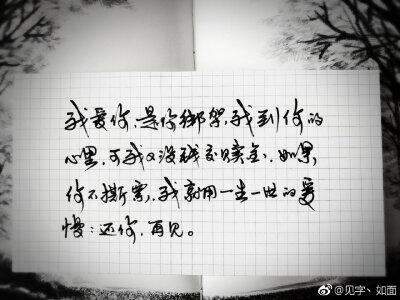 我爱你,是你绑架,我到你的
心里,可我又没钱交赎金,如果,
你不撕票,我就用一生一世的爱
慢:还你,再见。
@见字丶如面